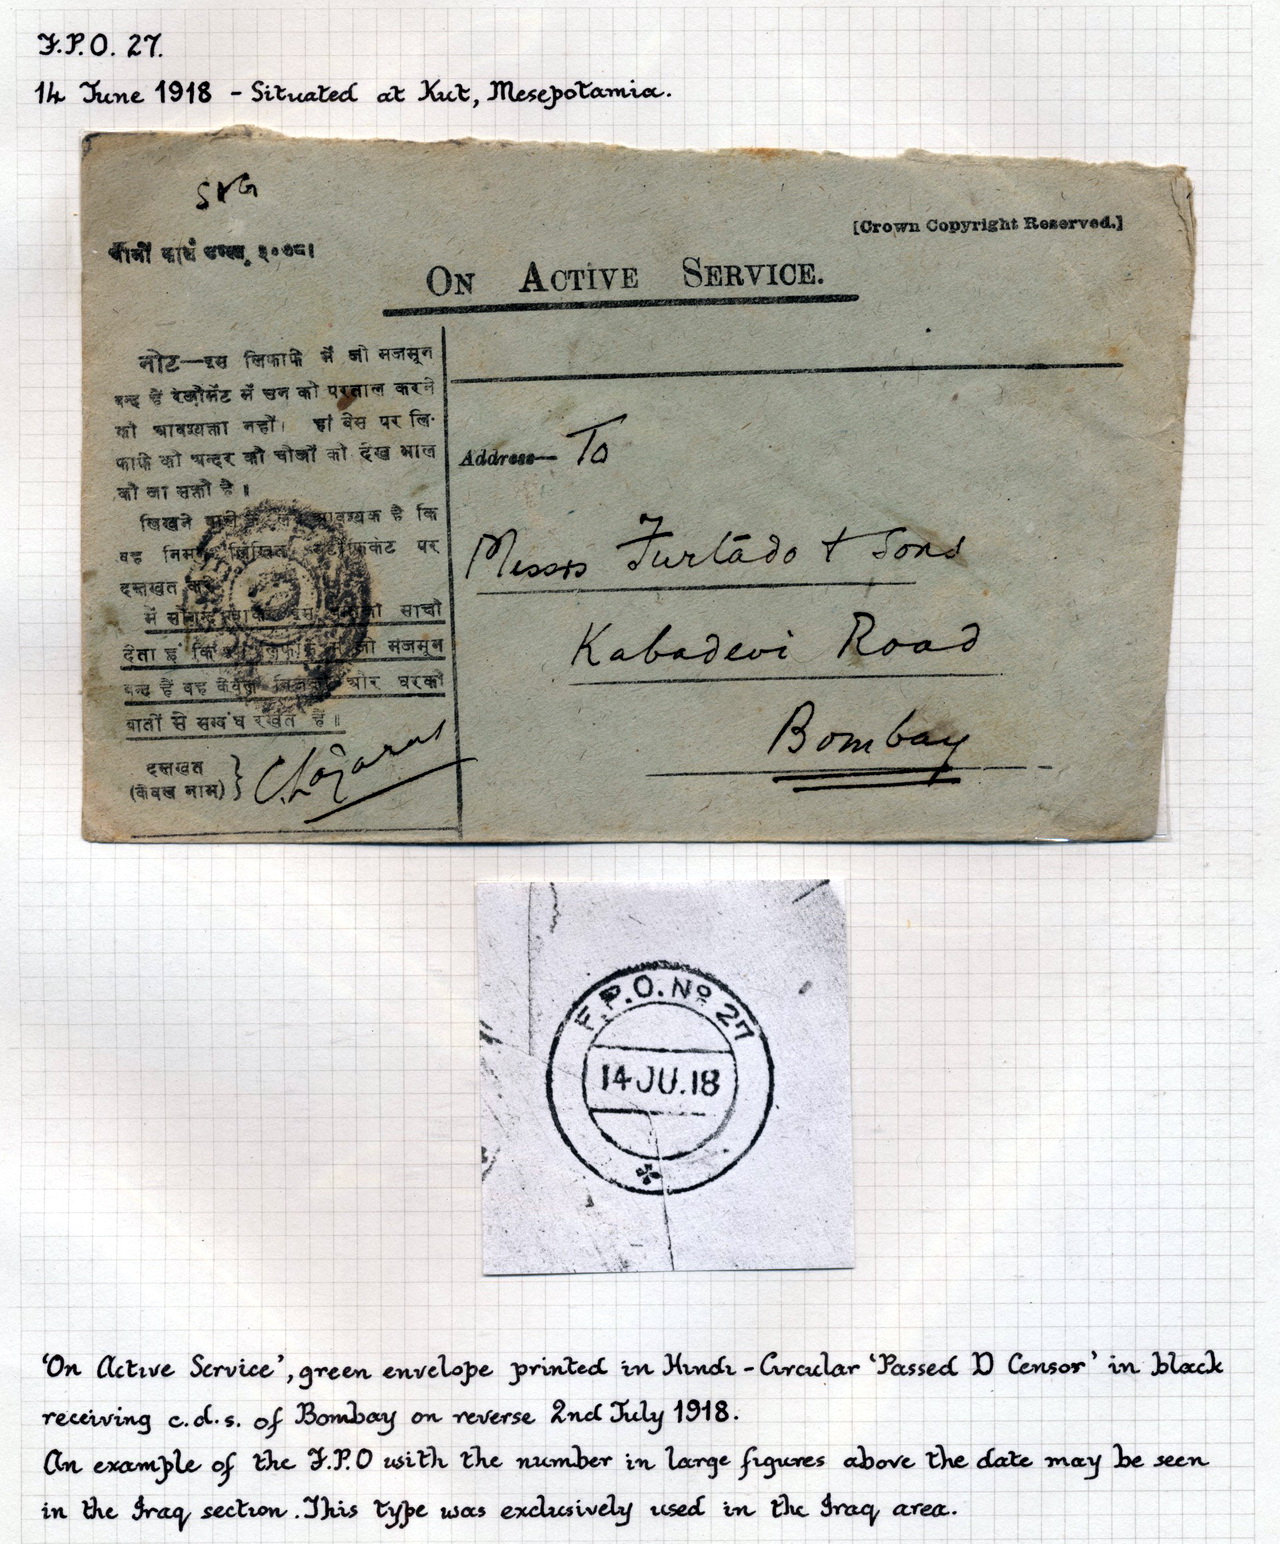 F.P.O. 27.
14 June 1918 - Situated at Kut, Mesepotamia.
[Crown Copyright Reserved.]
ON ACTIVE SERVICE.
नोट—इस लिफाफे में जो मजमून
बन्द हैं रेजीमेंट में उन को परताल करने
की आवश्यक्ता नहीं। हां बेस पर लि-
फाफे की अन्दर की चीजों की देख भाल
की जा सक्ती है।
लिखने आवश्यक है कि
वह लिखित पर
दस्तखत
में साची
देता हूं कि जो मजमून
बन्द हैं वह और घरकी
बातों से सम्बंध रखते हैं॥
दस्तखत
(केवल नाम)
C. Lazarus
Address— To
Messrs Furtado & Sons
Kabadevi Road
Bombay
F.P.O. No 27
14 JU. 18
'On Active Service', green envelope printed in Hindi - Circular 'Passed D Censor' in black
receiving c.d.s. of Bombay on reverse 2nd July 1918.
An example of the F.P.O with the number in large figures above the date may be seen
in the Iraq section. This type was exclusively used in the Iraq area.